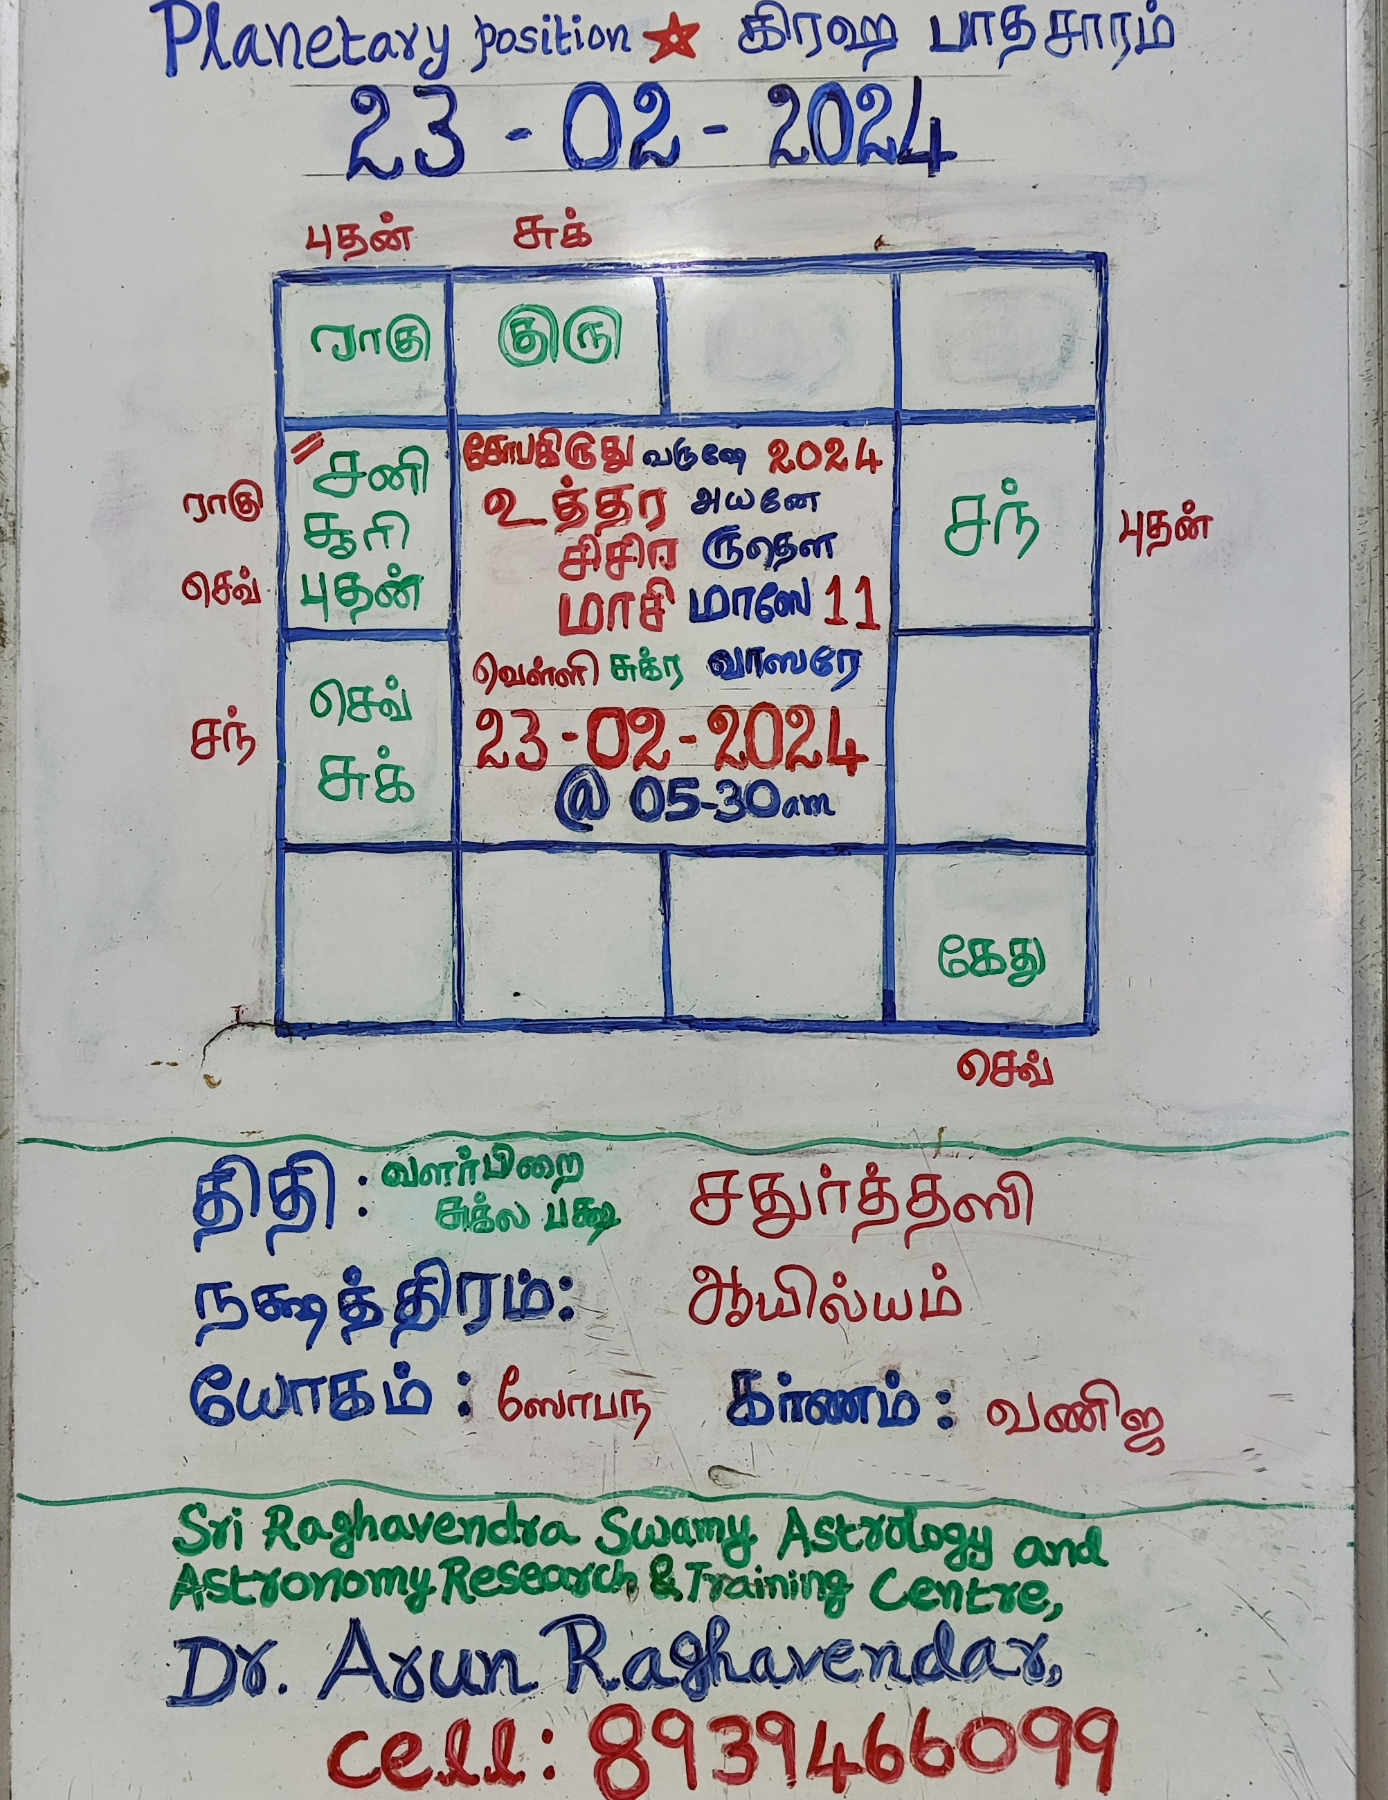 Planetary position ★ கிரஹ பாதசாரம்
23 - 02 - 2024
புதன் சுக்
ராகு குரு
சனி
சூரி
புதன்
ராகு
செவ்
கோபகிருது வருஷே 2024
உத்தர அயனே
சிசிர ருதௌ
மாசி மாஸே 11
வெள்ளி சுக்ர வாஸரே
23-02-2024
@ 05-30am
சந்
புதன்
சந்
செவ்
சுக்
கேது
செவ்
திதி : வளர்பிறை சதுர்த்தஸி
சுக்ல பக்ஷ
நக்ஷத்திரம்: ஆயில்யம்
யோகம் : ஸோபந கர்ணம் : வணிஜ
Sri Raghavendra Swamy Astrology and
Astronomy Research & Training Centre,
Dr. Arun Raghavendar,
cell: 8939466099